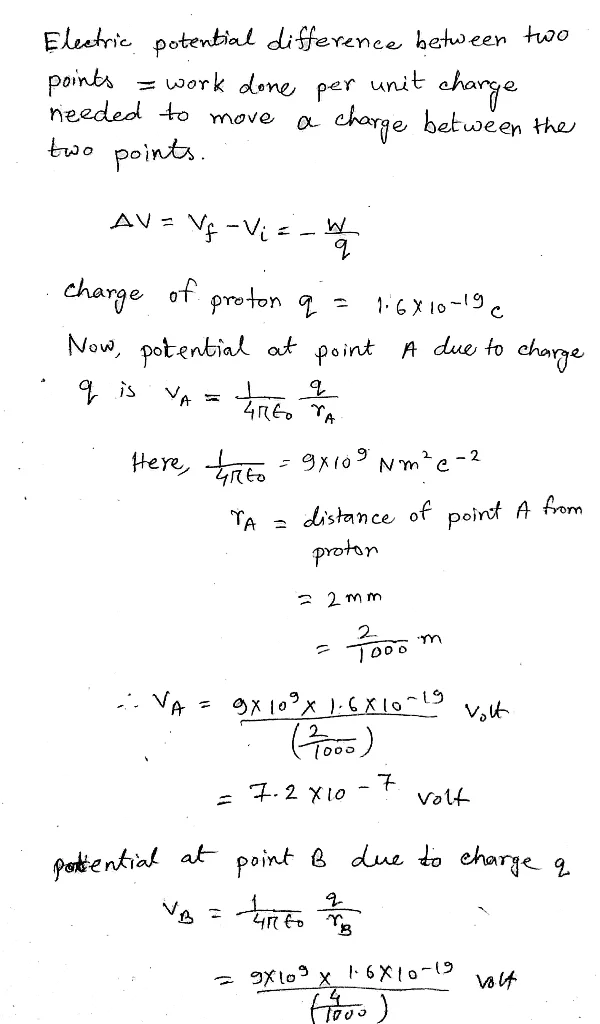 Electric potential difference between two
points = work done per unit charge
needed to move a charge between the
two points.
ΔV = Vf - Vi = - W/q
charge of proton q = 1.6 X 10-19 c
Now, potential at point A due to charge
q is VA = 1/4π€0 q/rA
Here, 1/4π€0 = 9X10⁹ Nm²c-2
rA = distance of point A from
proton
= 2mm
= 2/1000 m
∴ VA = 9X10⁹ X 1.6X10-19/(2/1000) Volt
= 7.2 X10-7 volt
potential at point B due to charge q
VB = 1/4π€0 q/rB
= 9X10⁹ X 1.6X10-19/(4/1000) volt